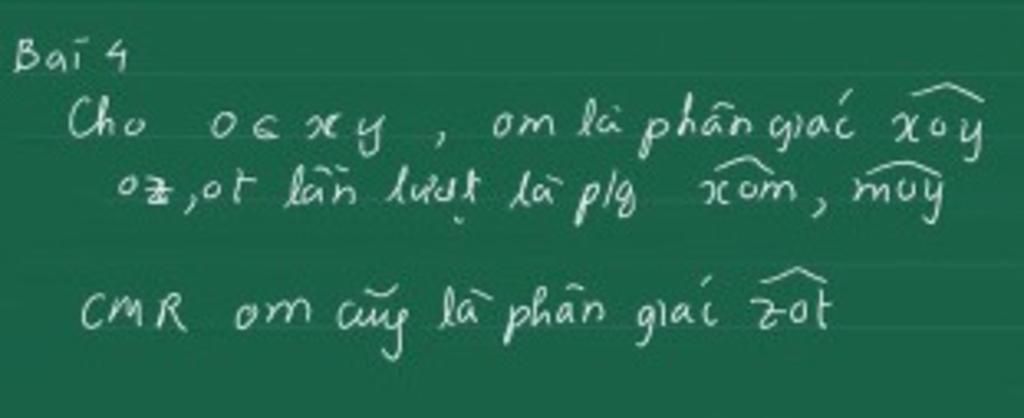 Bài 4
Cho O ∈ xy, om là phân giác x̂oy
oz, ot lần lượt là p/g x̂om, m̂oy
CMR om cũng là phân giác ẑot